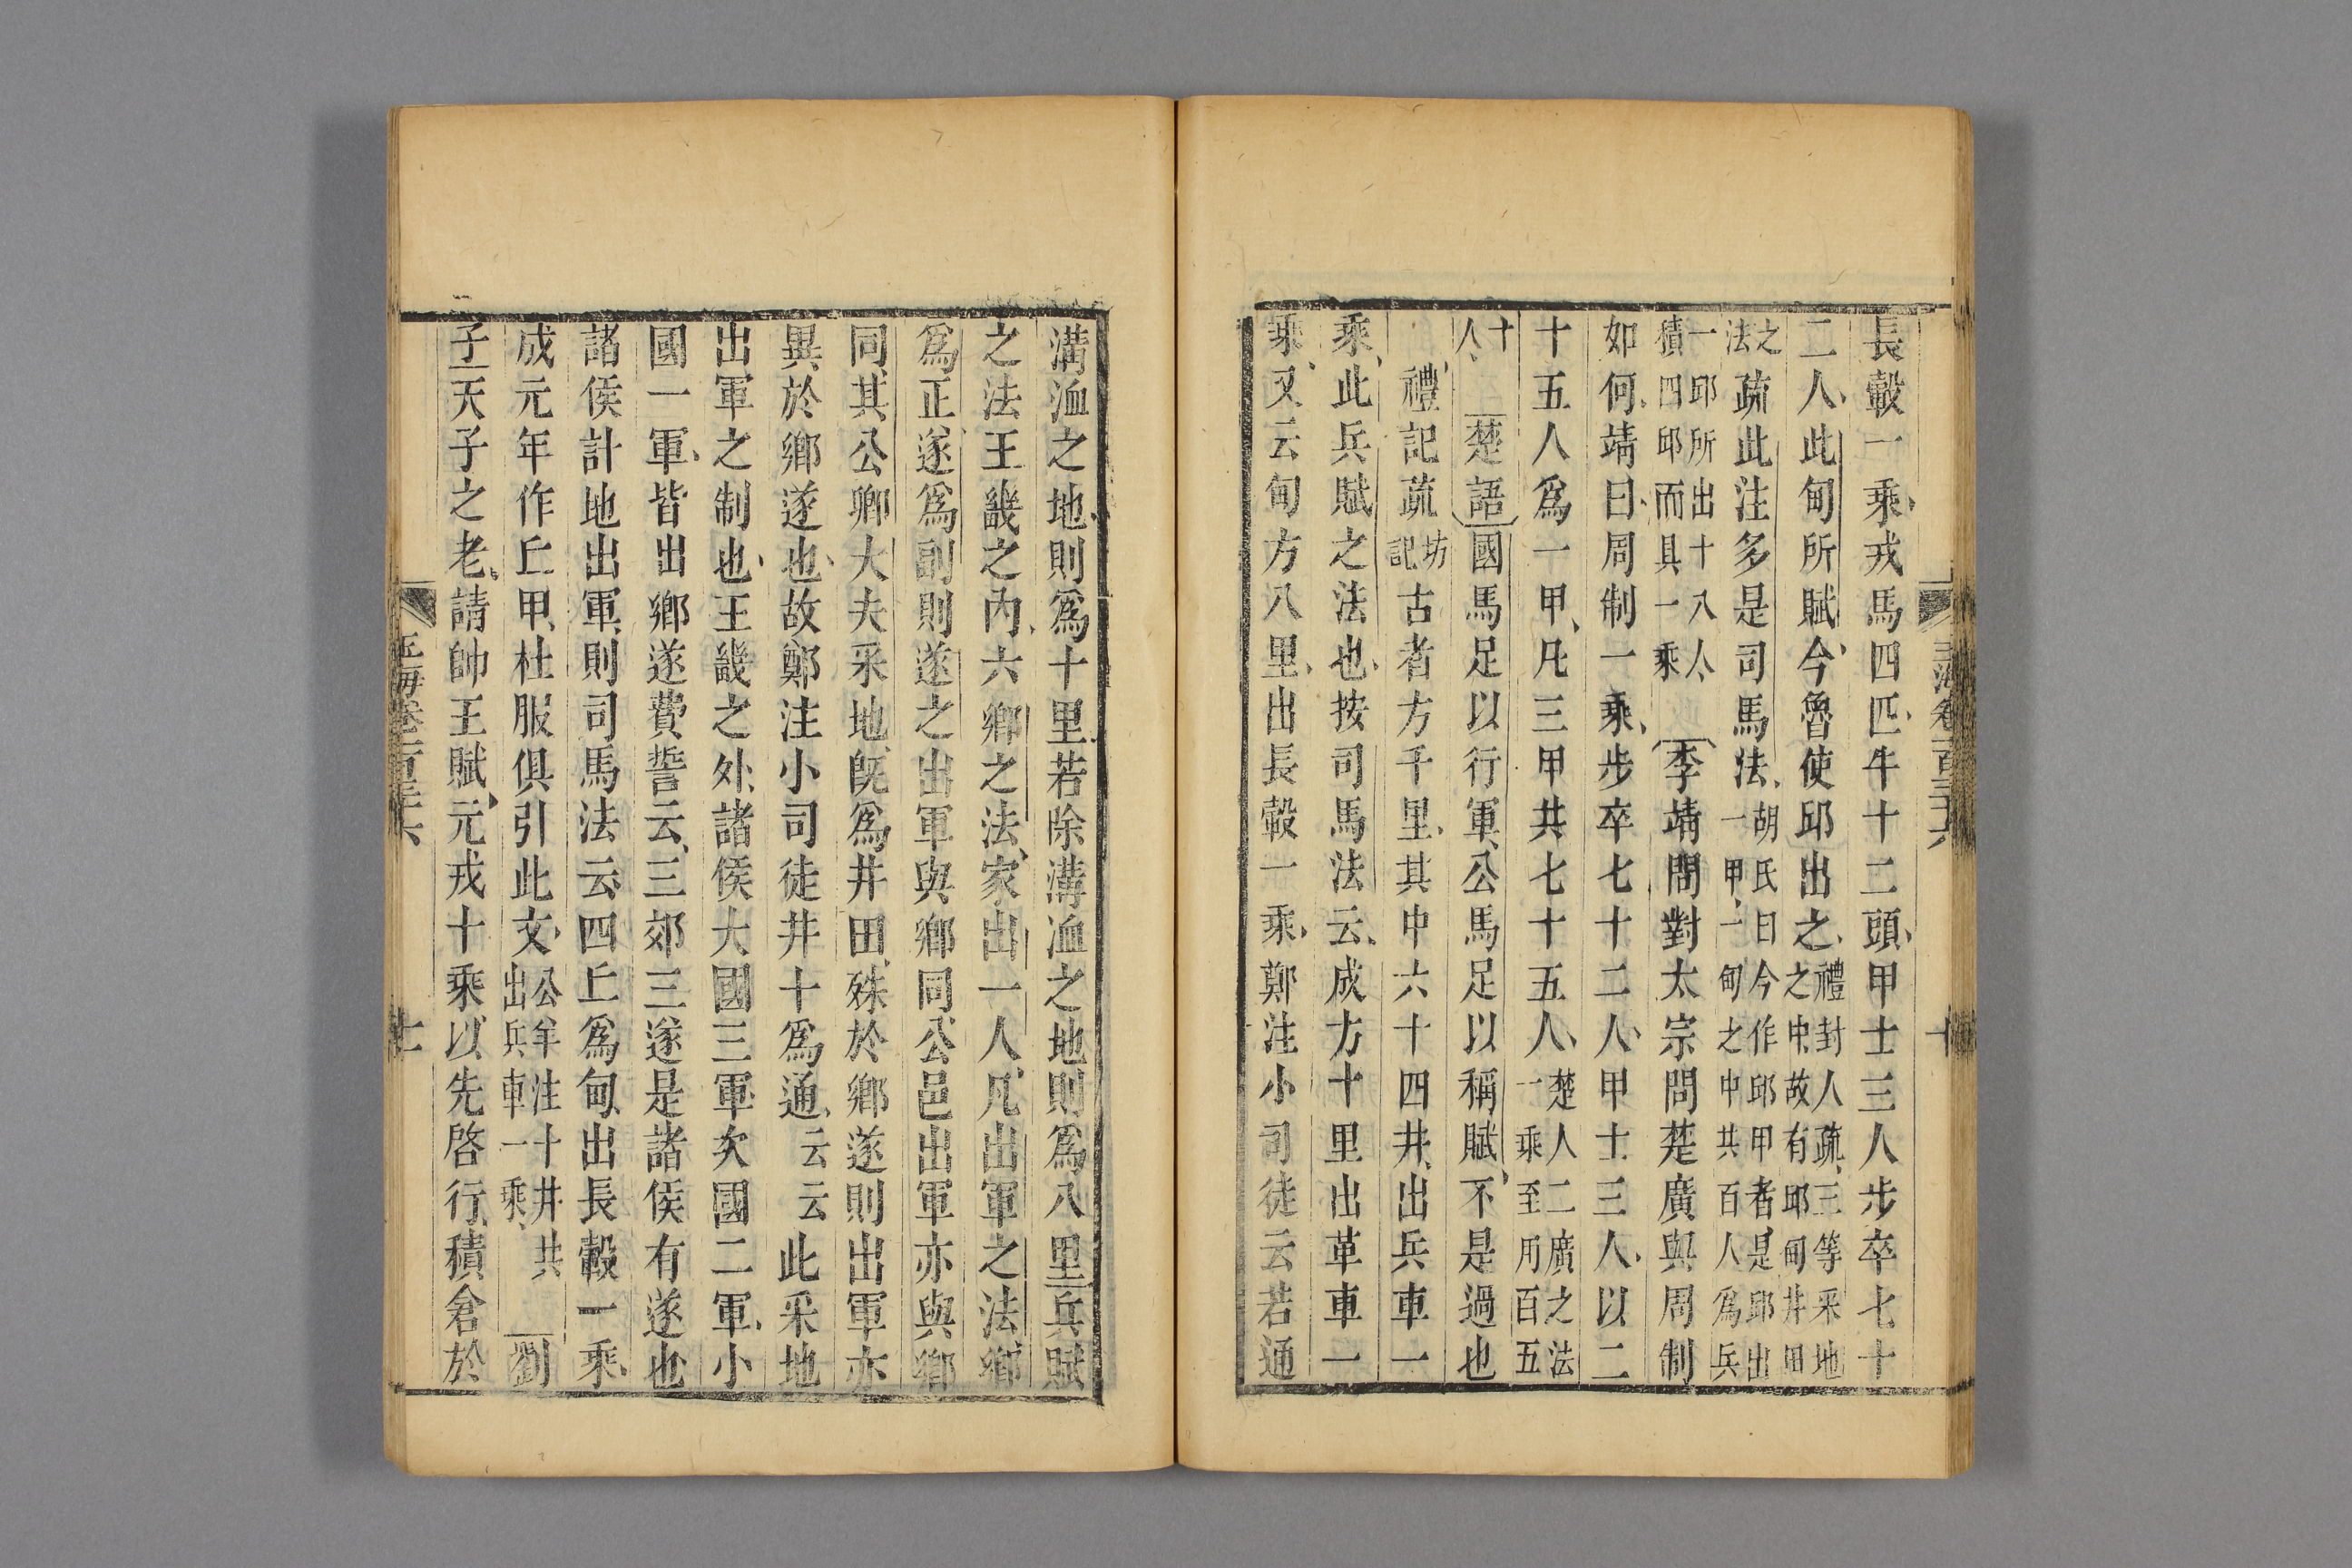 長轂一乘戎馬四匹牛十二頭甲士三人步卒七十
二人此甸所賦今魯使邱出之禮封人疏三等采地之中故有邱甸井田
之法疏此注多是司馬法胡氏曰今作邱甲者是邱出一甲一甸之中共百人爲兵
一邱所出十八人積四邱而具一乘李靖問對太宗問楚廣與周制
如何靖曰周制一乘步卒七十二人甲士三人以二
十五人爲一甲凡三甲共七十五人楚人二廣之法一乘至用百五
十人楚語國馬足以行軍公馬足以稱賦不是過也
禮記疏坊記古者方千里其中六十四井出兵車一
乘此兵賦之法也按司馬法云成方十里出革車一
乘又云甸方八里出長轂一乘鄭注小司徒云若通
玉海卷一百三十六
十
溝洫之地則爲十里若除溝洫之地則爲八里兵賦
之法王畿之內六鄉之法家出一人凡出軍之法鄉
爲正遂爲副則遂之出軍與鄉同公邑出軍亦與鄉
同其公卿大夫采地旣爲井田殊於鄉遂則出軍亦
異於鄉遂也故鄭注小司徒井十爲通云云此采地
出軍之制也王畿之外諸侯大國三軍次國二軍小
國一軍皆出鄉遂費誓云三郊三遂是諸侯有遂也
諸侯計地出軍則司馬法云四丘爲甸出長轂一乘
成元年作丘甲杜服俱引此文公羊注十井共出兵車一乘劉
子天子之老請帥王賦元戎十乘以先啓行積倉於
玉海卷一百三十六
十一